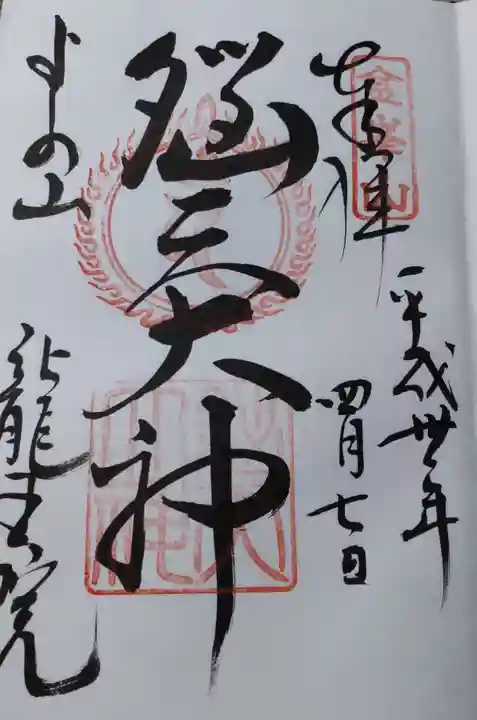 金峯山
奉拝
平成卅年
四月七日
脳天大神
よしの山
龍王院